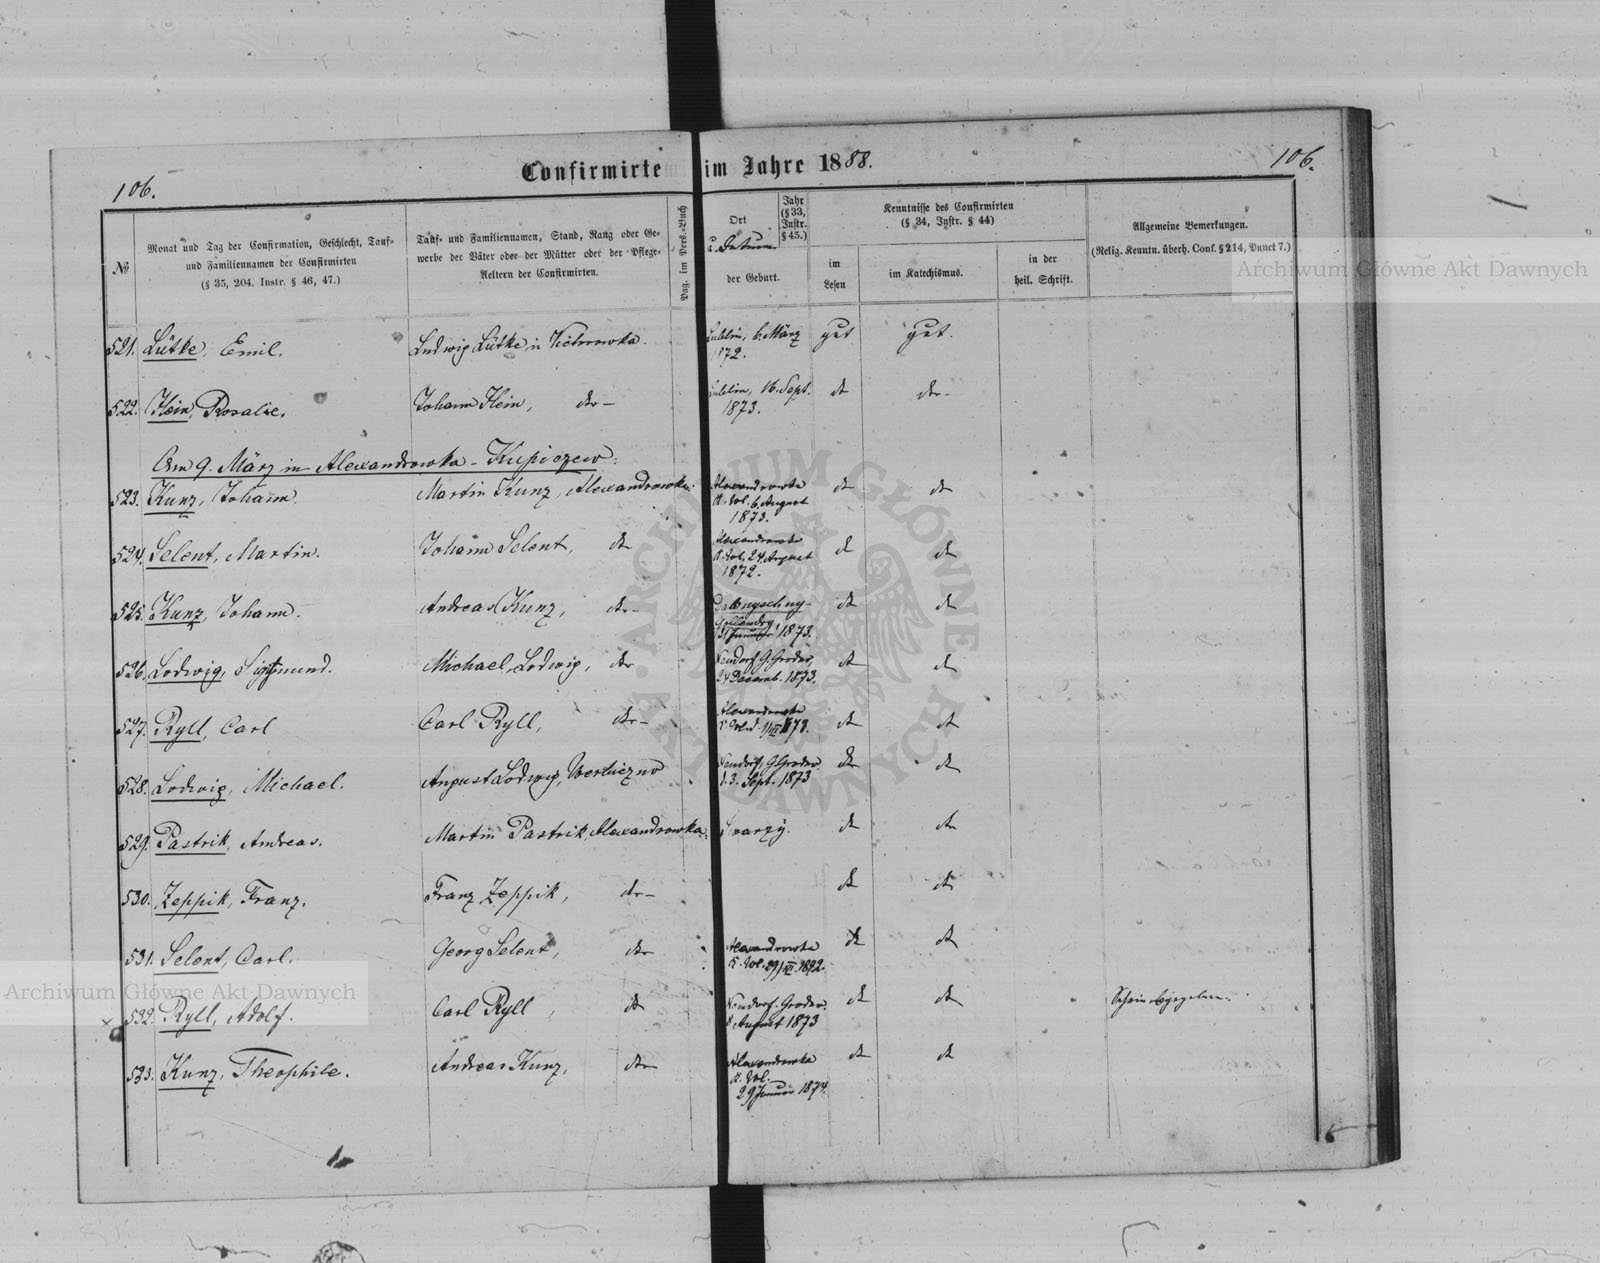 Confirmirte im Jahre 1888.
106.
106.
№
Monat und Tag der Confirmation, Geschlecht, Tauf-
und Familiennamen der Confirmirten
(§ 35, 204. Instr. § 46, 47.)
Tauf- und Familiennamen, Stand, Rang oder Ge-
werbe der Väter oder der Mütter oder der Pflege-
Aeltern der Confirmirten.
Pag. im Pers.-Buch
Ort
u. Datum
der Geburt.
Jahr
(§ 33,
Instr.
§ 45.)
Kenntnisse des Confirmirten
(§ 34, Instr. § 44)
im
Lesen
im Katechismus.
in der
heil. Schrift.
Allgemeine Bemerkungen.
(Relig. Kenntn. überh. Conf. § 214, Punct 7.)
521. Lütke, Emil. Ludwig Lütke, in Lublin, 6. März gut gut.
1872.
522. Hein, Rosalie. Johann Hein, do- Lublin, 16. Sept. do do-
1873.
Am 9. März in Alexandrowka - Kupiczew:
523. Kunz, Johann. Martin Kunz, Alexandrowka. Alexandrowka do do
K. Wol. 6. August
1873.
524. Selent, Martin. Johann Selent, do Alexandrowka do do
K. Wol. 24. August
1872.
525. Kunz, Johann. Andreas Kunz, do- do do
1873.
526. Lodwig, Sigismund. Michael Lodwig, do Neudorf, G. Grodno, do do
24 Decemb. 1873.
527. Ryll, Carl Carl Ryll, do- Alexandrowka do do
1873.
528. Lodwig, Michael. August Lodwig, Neudorf, G. Grodno do do
d. 3. Sept. 1873
529. Pastrik, Andreas. Martin Pastrik, Alexandrowka. do do
530. Zeppik, Franz. Franz Zeppik, do- do do
531. Selent, Carl. Georg Selent, do Alexandrowka do do
K. Wol. 29/XI. 1872.
532. Ryll, Adolf. Carl Ryll, do Neudorf. Grodno. do do
8 August 1873
533. Kunz, Theophile. Andreas Kunz, do Alexandrowka do do
K. Wol.
29 Januar 1874.
Archiwum Główne Akt Dawnych
Archiwum Główne Akt Dawnych
ARCHIWUM GŁÓWNE AKT DAWNYCH